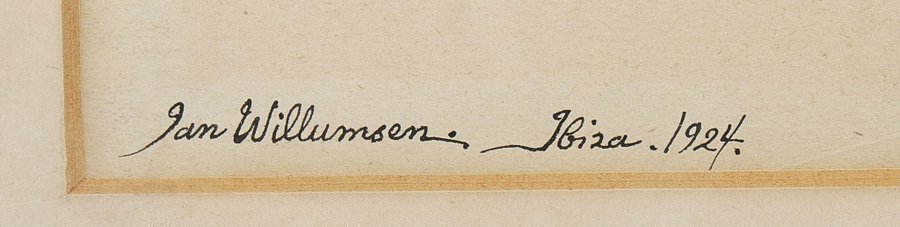 Jan Willumsen. Ibiza. 1924.